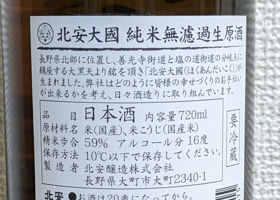 北安大國 純米無濾過生原酒
長野県北部に位置し、善光寺街道と塩の道街道の分岐点に
鎮座する大黒天より銘を頂き「北安大國(ほくあんだいこく)」が生
まれました。弊社はどのように皆様に幸せをもたらすことが
出来るかを考え、日々酒造りに取り組んでいます。
品目 日本酒 内容量720ml
原材料名 米(国産)、米こうじ(国産米)
精米歩合 59% アルコール分 16度
保存方法 10℃以下で保存してください。
製造者 北安醸造株式会社
長野県大町市大町2340-1
要冷蔵
北安 お酒は20歳になってから。